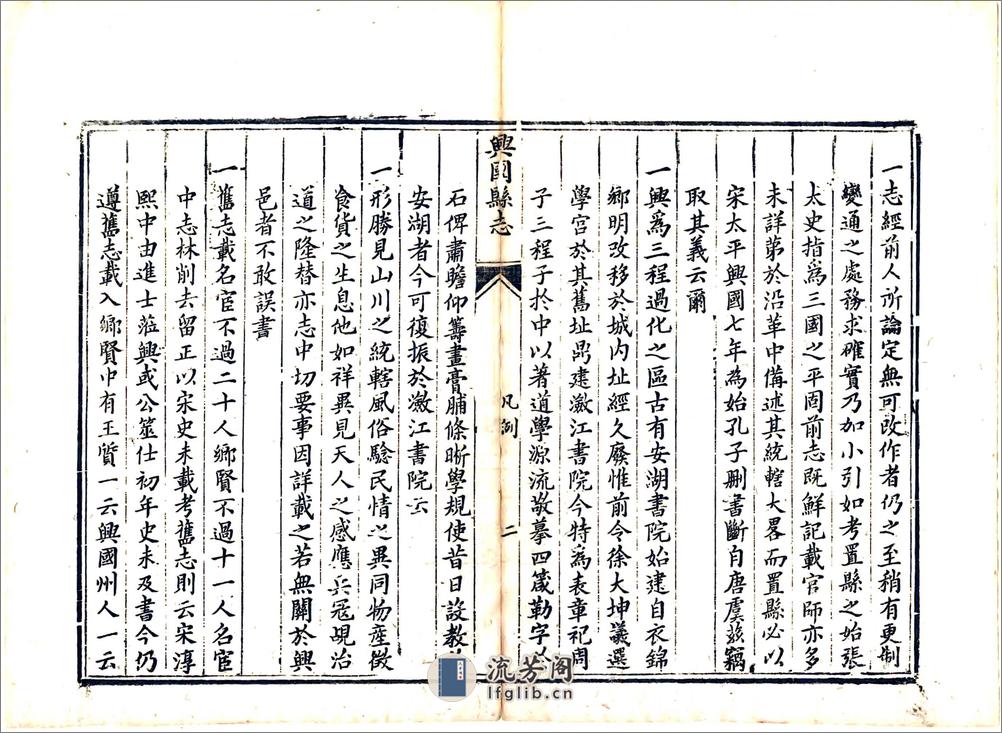 一志經前人所論定無可改作者仍之至稍有更制
變通之處務求確實乃加小引如考置縣之始張
太史指爲三國之平固前志既鮮記載官師亦多
未詳第於沿革中備述其統轄大畧而置縣必以
宋太平興國七年為始孔子删書斷自唐虞兹竊
取其義云爾
一興爲三程過化之區古有安湖書院始建自衣錦
鄉明改移於城内址經久廢惟前令徐大坤議選
學宫於其舊址鼎建瀲江書院今特為表章祀周
子三程子於中以著道學源流敬摹四箴勒字
石俾肅瞻仰籌畫膏脯條晰學規使昔日設教
安湖者今可復振於瀲江書院云
一形勝見山川之統轄風俗騐民情之異同物產徵
食貨之生息他如祥異見天人之感應兵冦覘治
道之隆替亦志中切要事因詳載之若無關於興
邑者不敢誤書
一舊志載名宦不過二十人鄉賢不過十一人名宦
中志林削去留正以宋史未載考舊志則云宋淳
熙中由進士蒞興或公筮仕初年史未及書今仍
遵舊志載入鄉賢中有王質一云興國州人一云
興國縣志
凡例
二
流芳阁
lfglib.cn